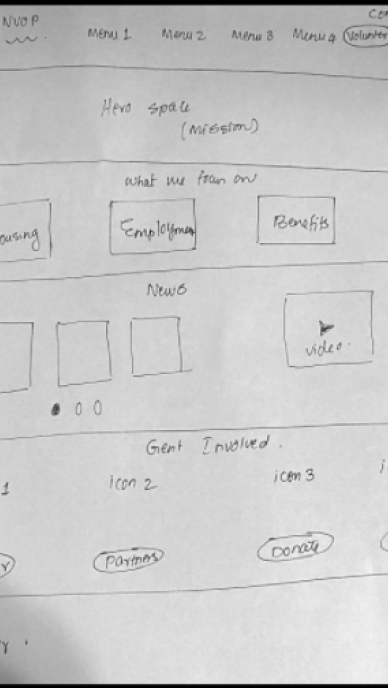 NVOP Menu 1 Menu 2 Menu 3 Menu 4 Volunteer
Hero space
(Mission)
What we focus on
ousing Employmen Benefits
News
video.
Get Involved.
1 icon 2 icon 3
Partners Donate